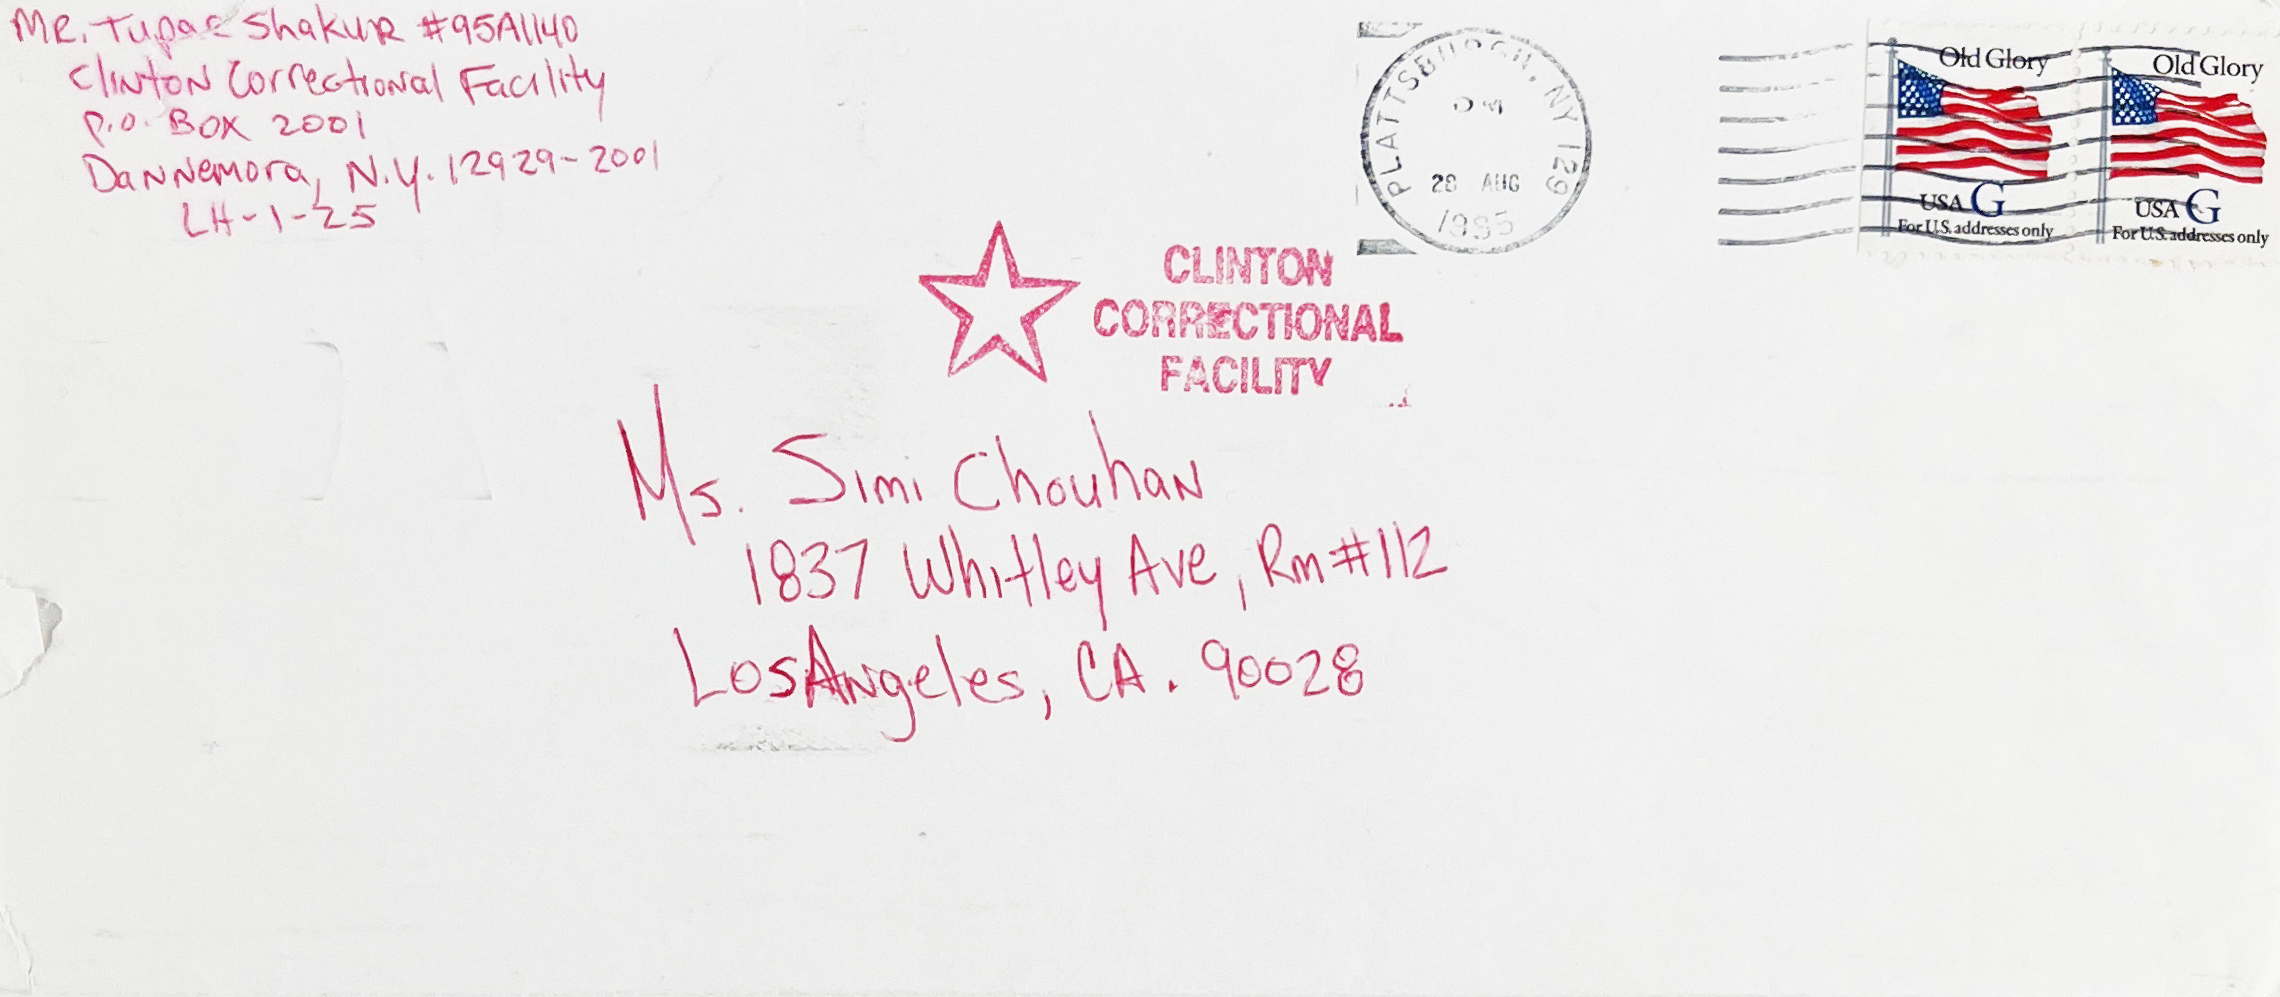 MR. Tupac Shakur #95A1140
Clinton Correctional Facility
P.O. BOX 2001
Dannemora, N.Y. 12929-2001
LH-1-25
PLATTSBURGH, NY 129
PM
28 AUG
1995
Old Glory
USA G
For U.S. addresses only
Old Glory
USA G
For U.S. addresses only
CLINTON
CORRECTIONAL
FACILITY
Ms. Simi Chouhan
1837 Whitley Ave, Rm #112
Los Angeles, CA. 90028